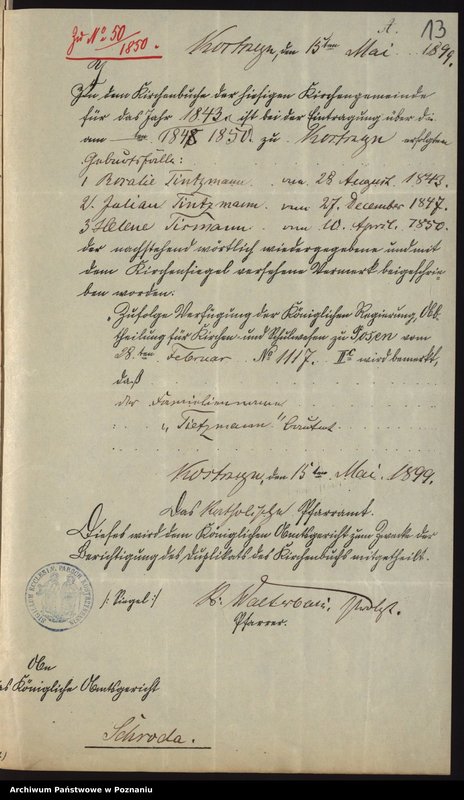 A.
13
Zu No 50/1850.
Kostrzyn, den 15ten Mai 1899.
In dem Kirchenbuche der hiesigen Kirchengemeinde
für das Jahr 1843 ist bei der Eintragung über die
am ten 1848 1850 zu Kostrzyn erfolgten
Geburtsfälle:
1 Rosalie Tintzmann vom 28 August 1843.
2/. Julian Tintzmann. vom 27. December 1847.
3 Helene Tirmann vom 10. April. 1850.
der nachstehend wörtlich wiedergegebene und mit
dem Kirchensiegel versehene Vermerk beigeschrie-
ben worden.
„Zufolge Verfügung der Königlichen Regierung, Ab-
theilung für Kirchen- und Schulwesen zu Posen vom
28.ten Februar No 1117. IIc wird bemerkt,
daß
der Familienname
„Tietzmann" lautet.
Kostrzyn, den 15ten Mai. 1899.
Das Katholische Pfarramt.
Dieses wird dem Königlichen Amtsgericht zum Zwecke der
Berichtigung des Duplikats des Kirchenbuchs mitgetheilt.
/: Siegel :/
Propst.
Pfarrer.
An
das Königliche Amtsgericht
Schroda.
Archiwum Państwowe w Poznaniu